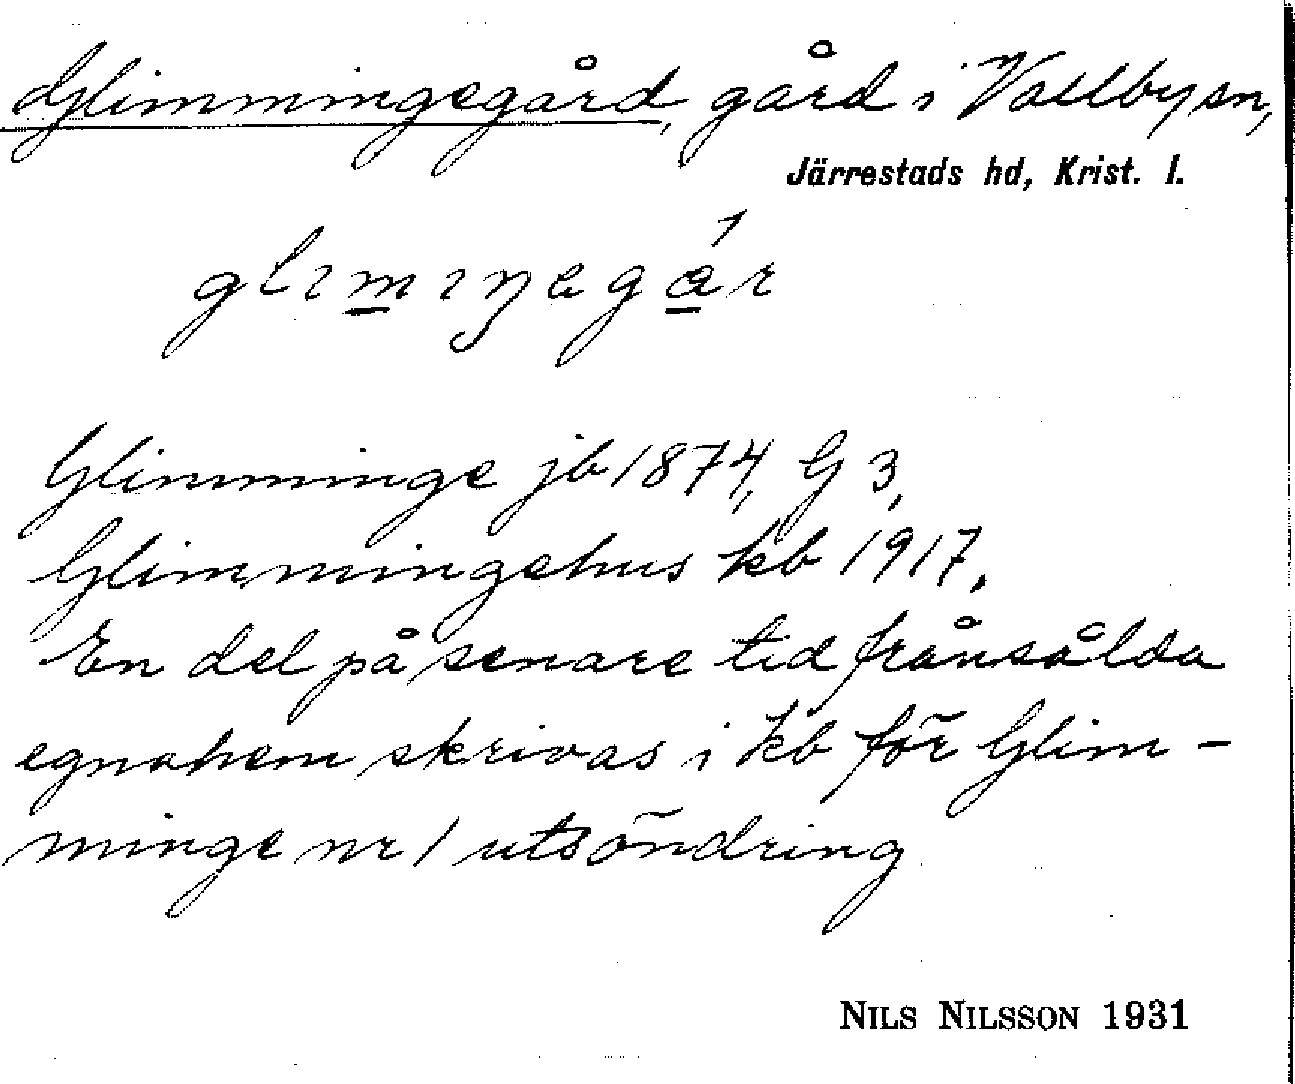 Glimmingegård, gård i Vallby sn,
Järrestads hd, Krist. l.
glimiŋegár
Glimminge jb 1874, G 3,
Glimmingehus kb 1917.
En del på senare tid frånsålda
egnahem skrivas i kb för Glim-
minge nr 1 utsöndring
NILS NILSSON 1931